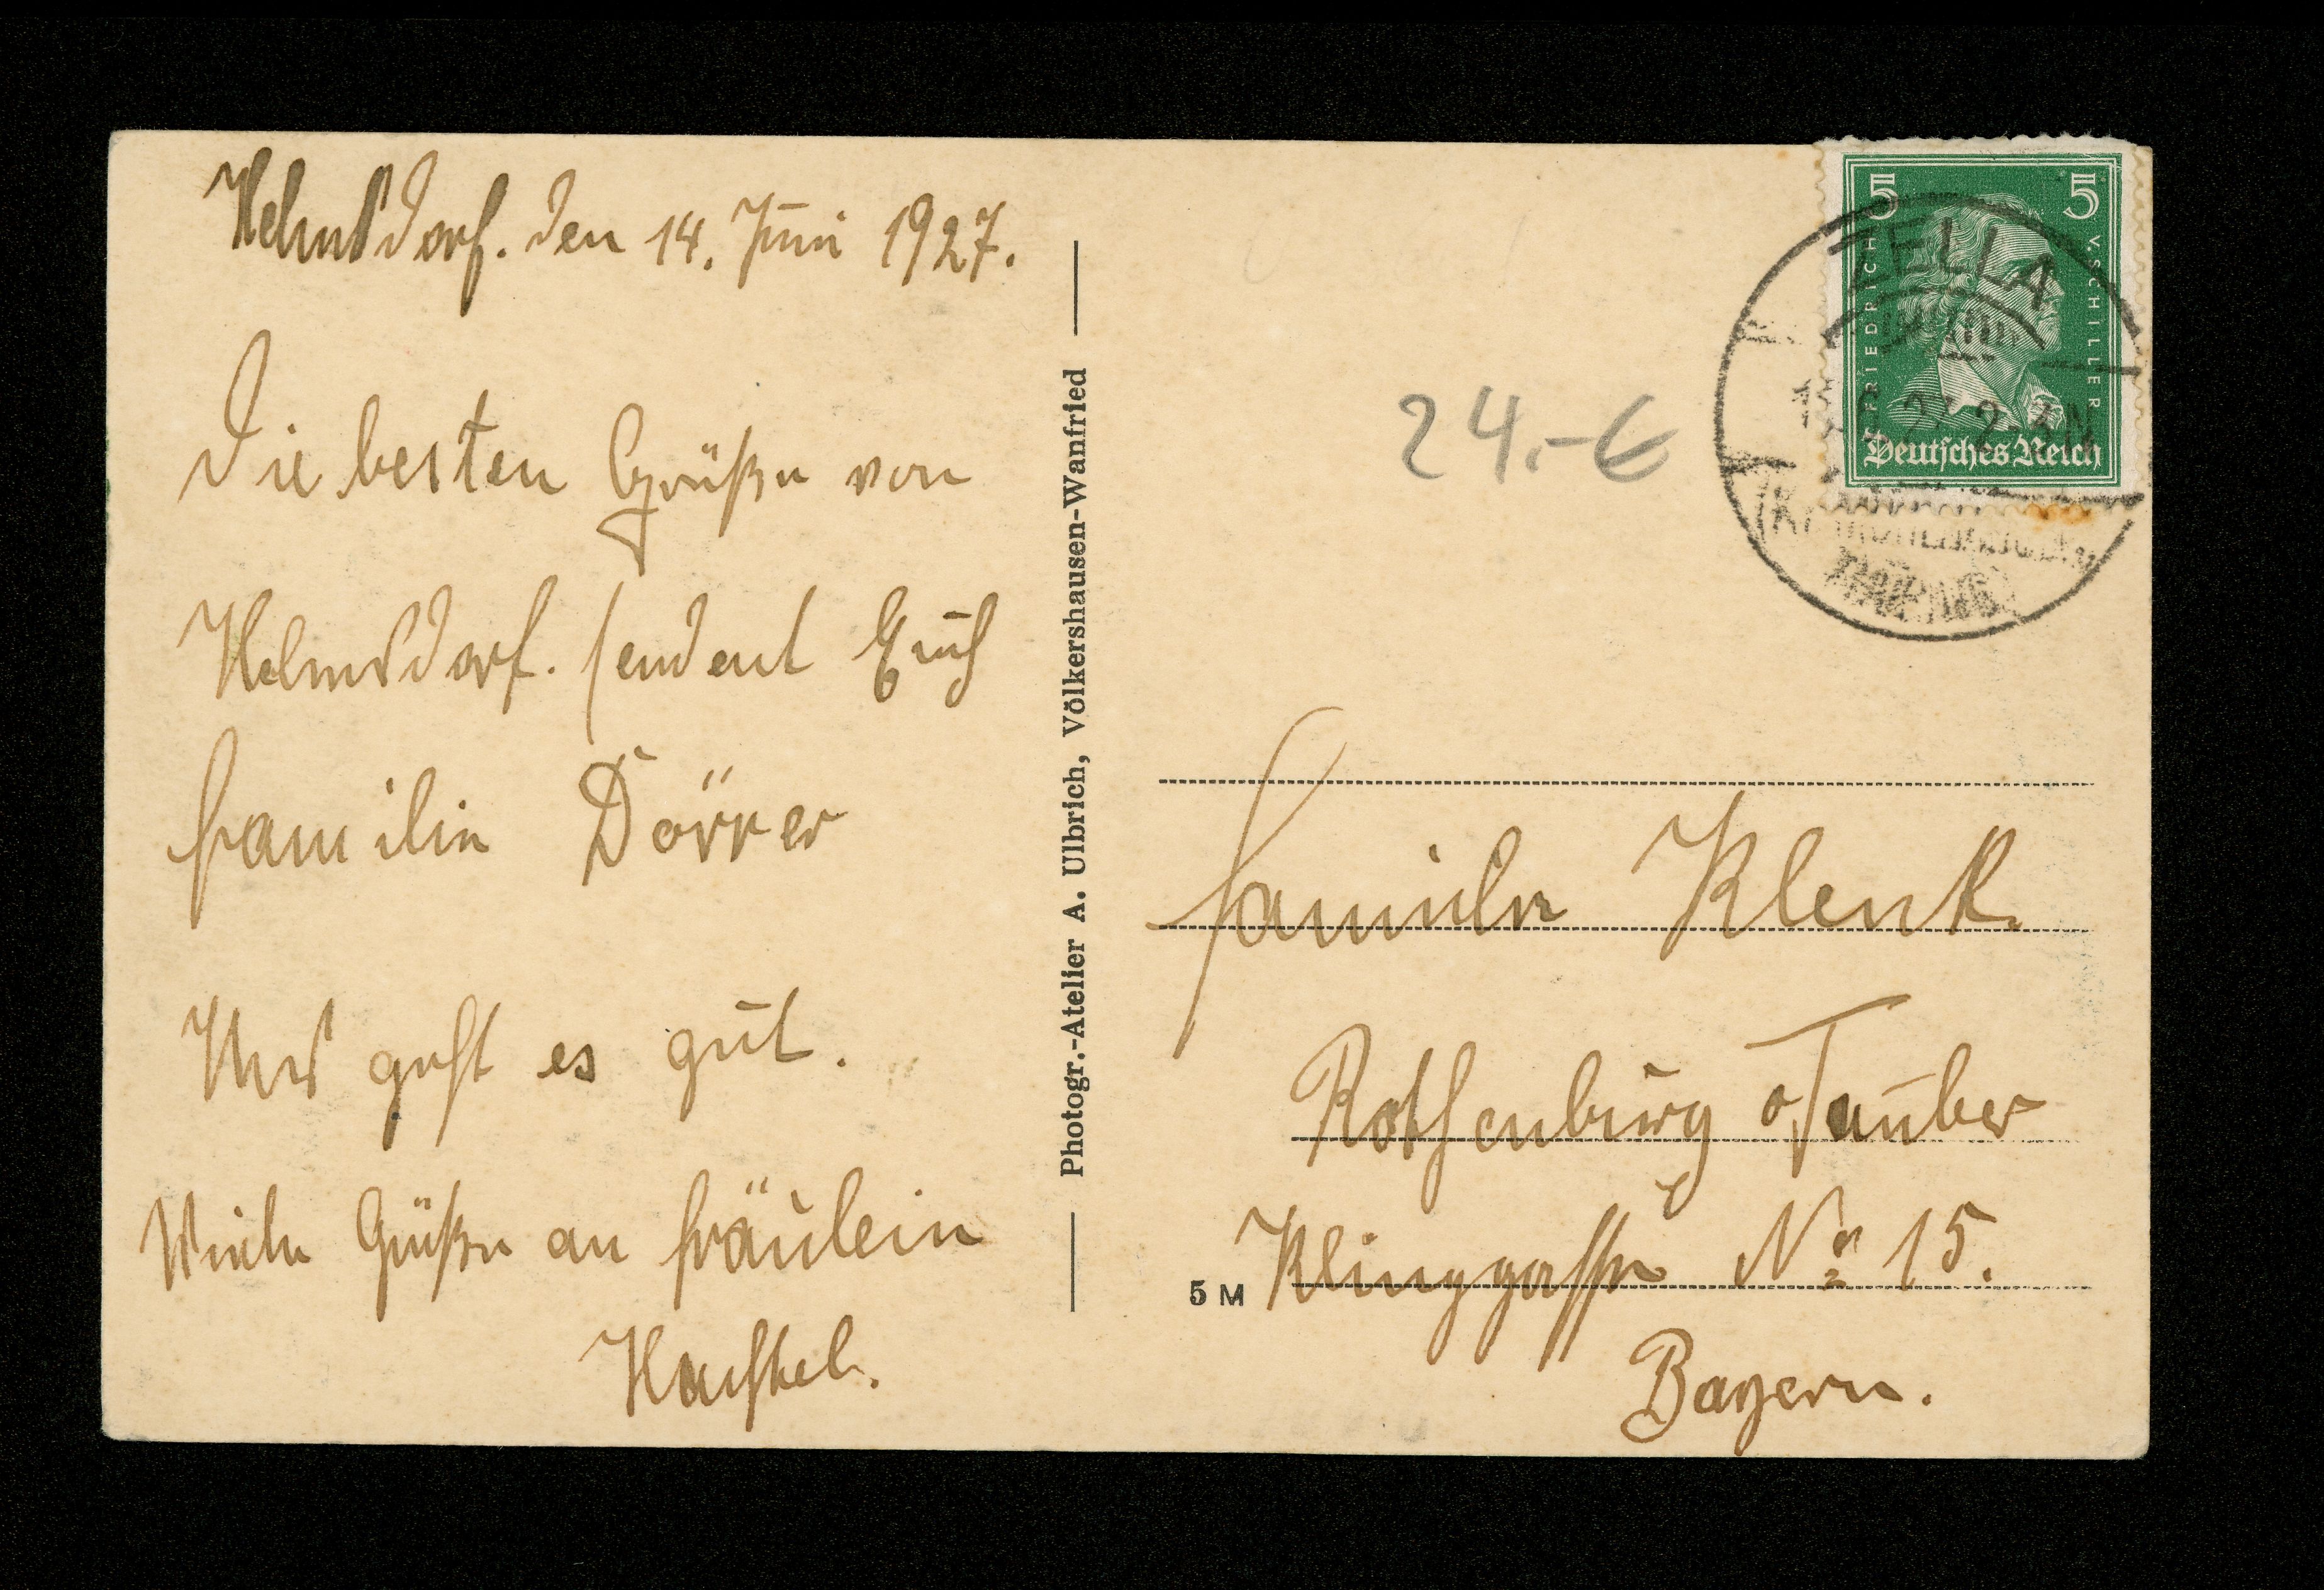 Helmsdorf. den 14. Juni 1927.
Die besten Grüße von
Helmsdorf. sendent Euch
Familie Dörrer
Uns geht es gut.
Viele Grüße an Fräulein
Photogr.-Atelier A. Ulbrich, Völkershausen-Wanfried
5 5
FRIEDRICH V. SCHILLER
Deutsches Reich
ZELLA
24.-€
Familie Klenk.
Rothenburg o/Tauber
5 M Klinggasse No 15.
Bayern.